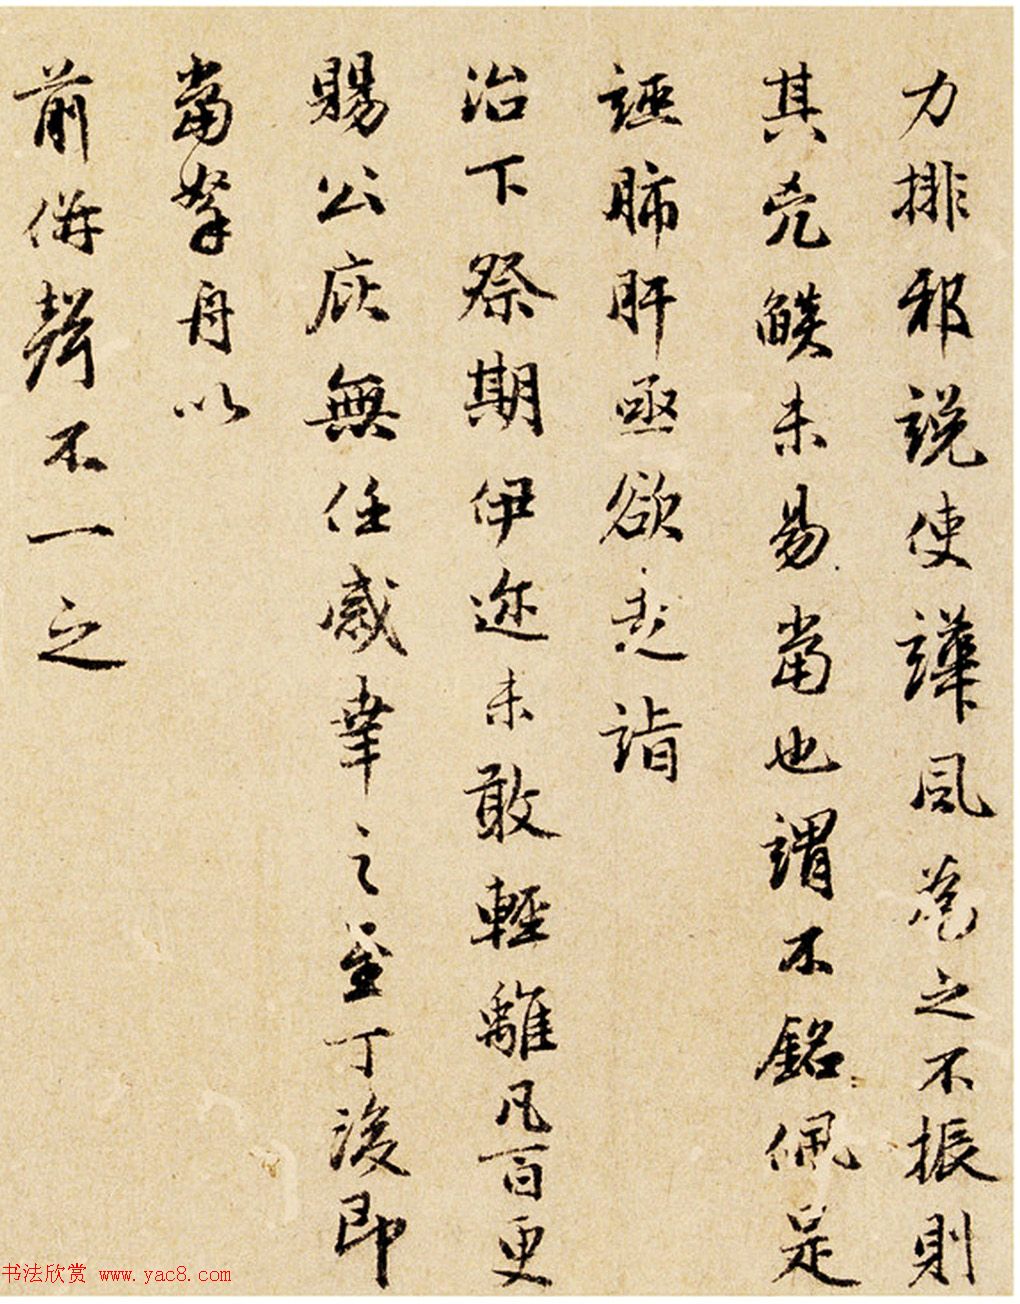 力排邪說使譁風為之不振則
其兇燄未易當也謂不銘佩足
誣肺肝亟欲走詣
治下祭期伊邇未敢輕離凡百更
賜公庇無任感幸之至丁後即
當拏舟以
前併聲不一之
书法欣赏 www.yac8.com